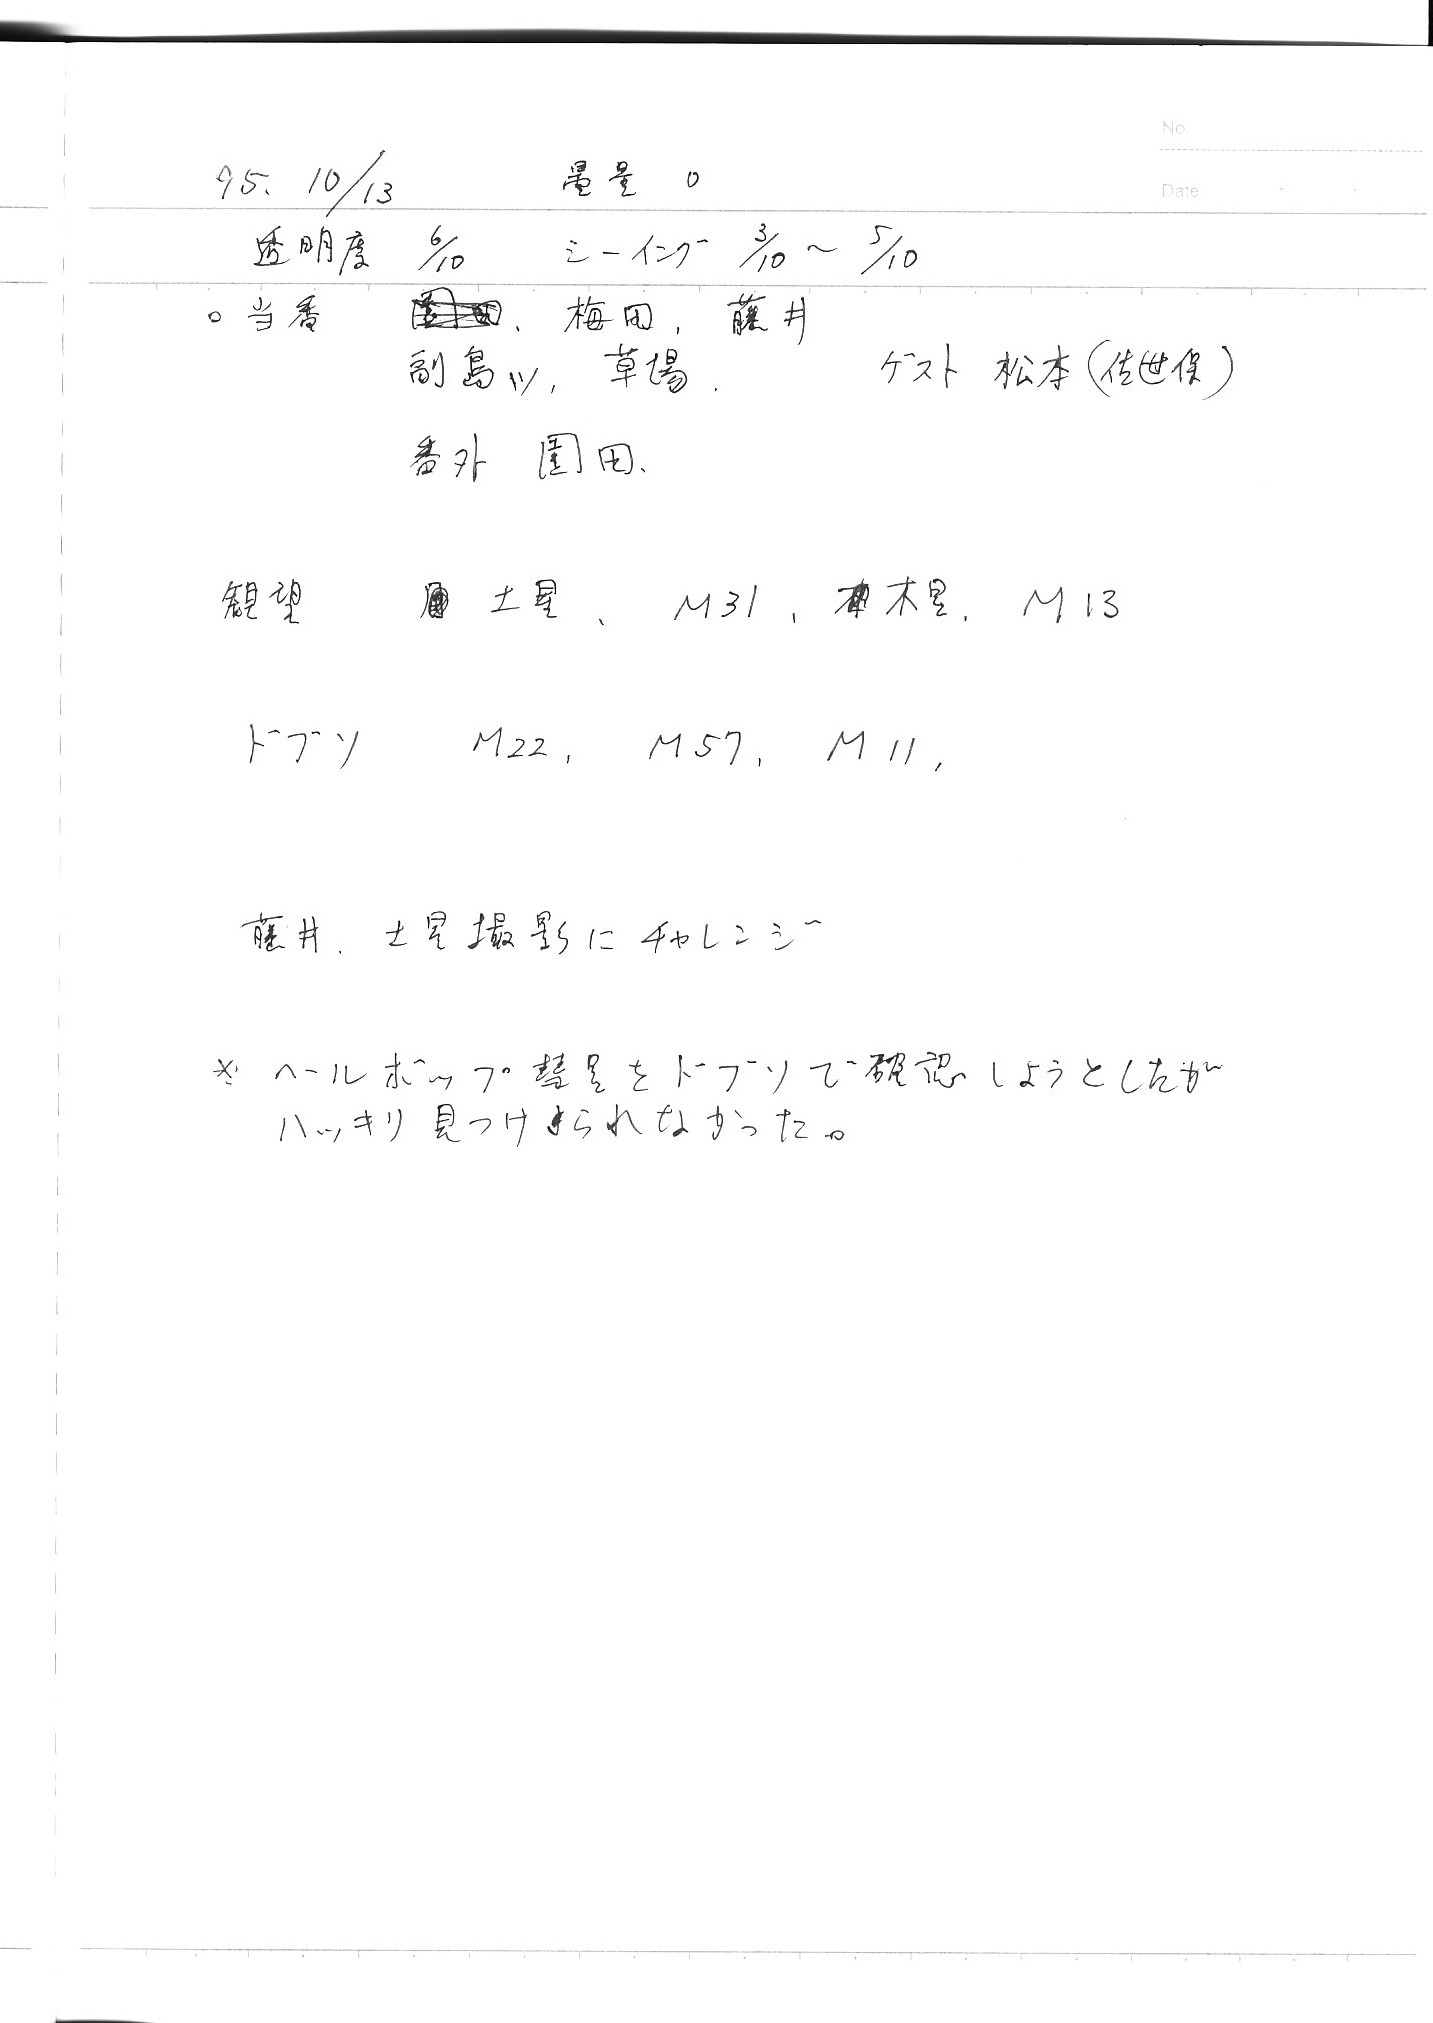 No
95. 10/13 曇量 0
Date
透明度 6/10 シーイング 3/10 ~ 5/10
○当番 園田、梅田、藤井
副島ツ、草場. ゲスト 松本(佐世保)
番外 園田、
観望 土星、M31、木星、M13
ドブソ M22, M57, M11,
藤井、土星撮影にチャレンジー
※ ヘールボップ彗星をドブソで確認しようとしたが
ハッキリ見つけられなかった。